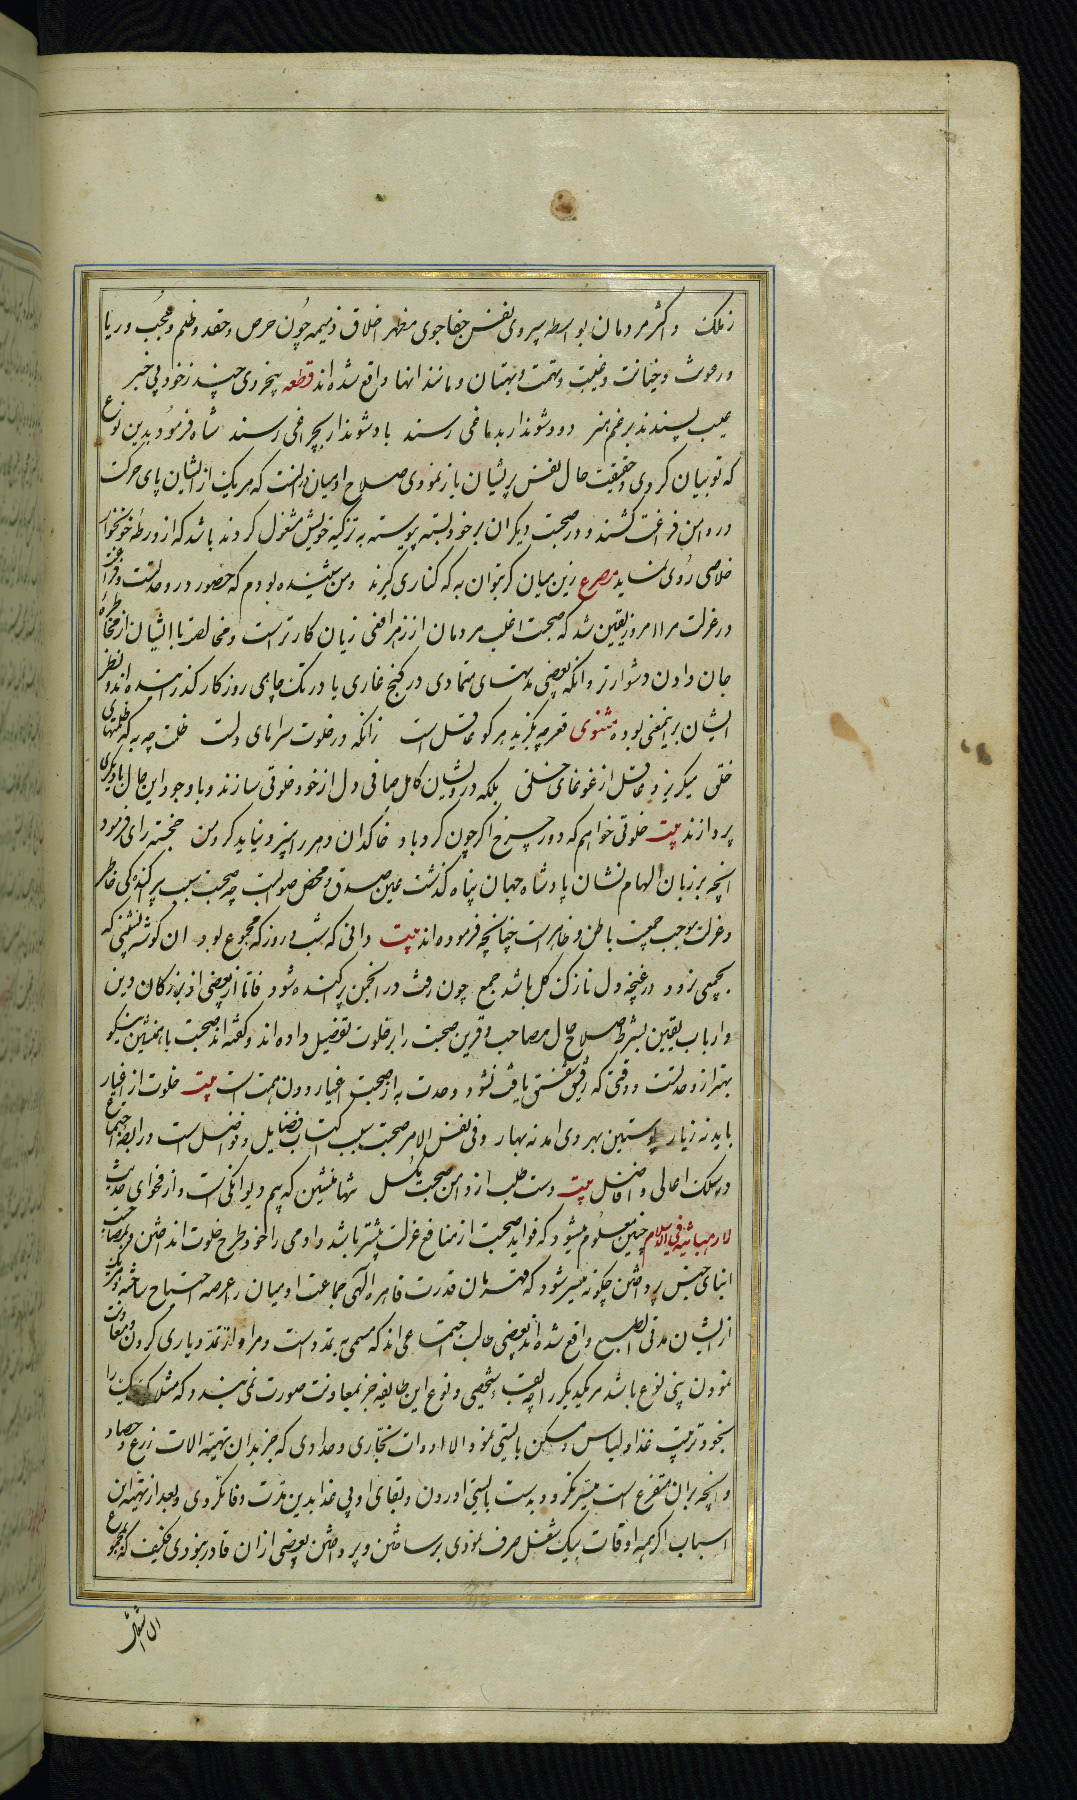 ز ملک و اکثر مردمان بواسطه پیروی نفس جفاجوی مظهر اخلاق ذمیمه چون حرص و حقد و ظلم و عجب و ریا
و رعونت و خیانت و غیبت و تهمت و بهتان و مانند انها واقع شده اند قطعه بیخردی چند ز خود بی خبر
عیب پسندند برغم هنر دود شوند ار بدماغی رسند باد شوند ار بچراغی رسند شاه فرمود بدین نوع
که تو بیان کردی و حقیقت حال نفس پریشان باز نمودی صلاح ادمیان در انست که هر یک از ایشان پای حرکت
در دامن فراغت کشند و در صحبت دیکران بر خود بسته پیوسته به تزکیه خویش مشغول کردند باشد که از ورطه خونخوار
خلاصی روی نماید مصرع زین میان کر بتوان به که کناری کیرند و من شنیده بودم که حضور در وحدتست و فراغت
در عزلت مرا امروز یقین شد که صحبت اغلب مردمان از زهر افعی زیان کارتر است و مخالطت با ایشان از مخاطره
جان دادن دشوارتر و انکه بعضی مدتهای متمادی در کنج غاری یا در تک چاهی روزکار کذرانیده اند و نظر
ایشان بر اینمعنی بوده مثنوی قعر چه بکزید هر کو عاقل است زانکه در خلوت سراهای دلست ظلمت چه به که ظلمتهای
خلق میکریزد عاقل از غوغای خلق بلکه درویشان کامل صافی دل از خود خلوتی سازند و با وجود این حال با دیکری
پردازند بیت خلوتی خواهم که دور چرخ اکر چون کردباد خاکدان دهر را بیزد نیابد کرد من خجسته رای فرمود
انچه بر زبان الهام نشان پادشاه جهان پناه کذشت عین صدق و محض صوابست چه صحبت سبب پراکندکی خاطر
و عزلت موجب جمعیت باطن و ظاهر است چنانچه فرموده اند بیت دانی که شب و روز که مجموع بود ان کوشه نشینی که
بجمعی نرود در غنچه دل نازک کل باشد جمع چون رفت در انجمن پراکنده شود فاما بعضی از بزرکان دین
و ارباب یقین بشرط صلاح حال مصاحب و قرین صحبت را بر خلوت تفضیل داده اند و کفته اند صحبت با همنشین نیکو
بهتر از وحدتست و وقتی که رفیق شفیق یافت نشود وحدت به از صحبت اغیار دون همت است بیت خلوت از اغیار
باید نه ز یار پوستین بهر دی امد نه بهار و فی نفس الامر صحبت سبب اکتساب فضایل و فواضل است و رابطه اجتماع
در سلک اعالی و افاضل بیت دست طلب از دامن صحبت مکسل تنها منشین که بیم دیوانکی است و از فحوای حدیث
لا رهبانیة فی الاسلام چنین معلوم میشود که فواید صحبت از منافع عزلت بیشتر باشد و ادمی را خود طرح خلوت انداختن و بمصاحبت
ابنای جنس پرداختن چکونه میسر شود که قهرمان قدرت قاهره الهی جماعت ادمیان را عرصه احتیاج ساخته و هریک
از ایشان مدنی الطبع واقع شده اند یعضی طالب اجتماعی اند که مسمی به تمدن است و مراد از تمدن یاری کردن و معاونت
نمودن بنی نوع باشد مر یکدیکر را چه بقاء شخصی و نوع این طایفه جز بمعاونت صورت نمی بندد که مثلا کر یک را
بخود ترتیب غذا و لباس و مسکن بایستی نمود الا ادوات نجاری و حدادی که جز بدان تهیه الات زرع و حصاد
و انچه بر ان متفرع است میسر نکردد بدست بایستی اوردن و بقای او بی غذا بدین مدت وفا نکردی و بعد از تهیه این
اسباب اکر همه اوقات بیک شغل صرف نمودی بر ساختن و پرداختن بعضی از ان قادر نبودی فکیف که بمجموع
ان اشتغال